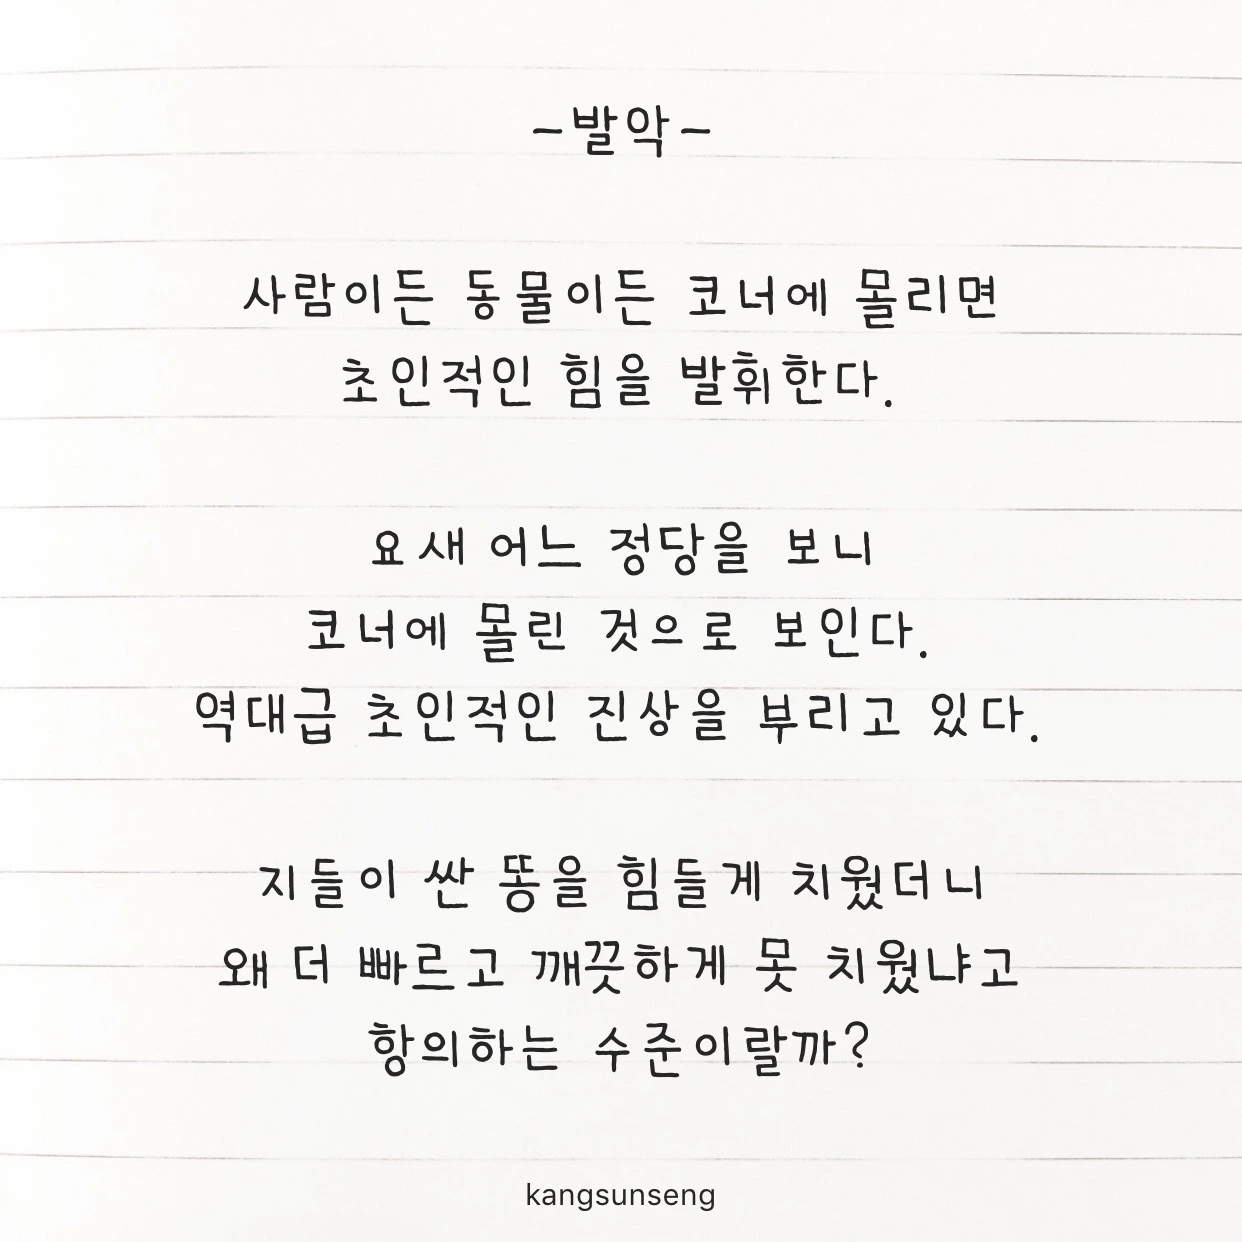 -발악-
사람이든 동물이든 코너에 몰리면
초인적인 힘을 발휘한다.
요새 어느 정당을 보니
코너에 몰린 것으로 보인다.
역대급 초인적인 진상을 부리고 있다.
지들이 싼 똥을 힘들게 치웠더니
왜 더 빠르고 깨끗하게 못 치웠냐고
항의하는 수준이랄까?
kangsunseng